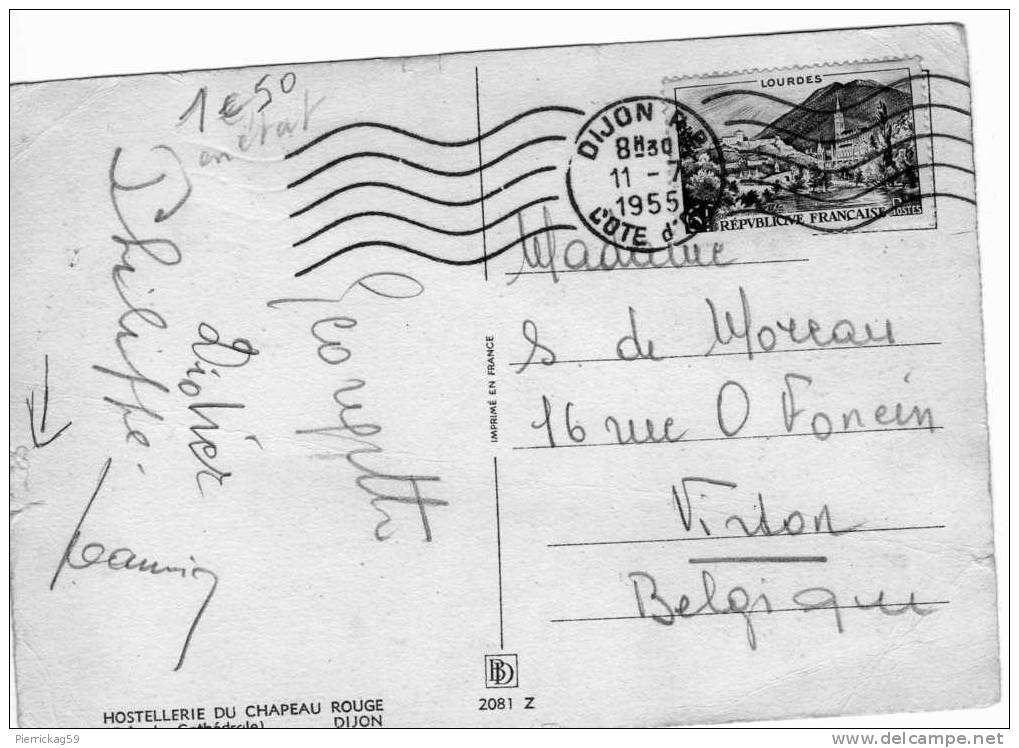 1 € 50
en état
Philippe.
Didier
Georgette
LOURDES
RÉPVBLIQVE FRANÇAISE
POSTES
DIJON R.P.
8H30
11 - 7
1955
CÔTE d'OR
Madame
S de Moreau
16 rue O Foncin
Virton
Belgique
IMPRIMÉ EN FRANCE
BD
2081 Z
HOSTELLERIE DU CHAPEAU ROUGE
Cathédrale) DIJON
Pierrickag59
www.delcampe.net